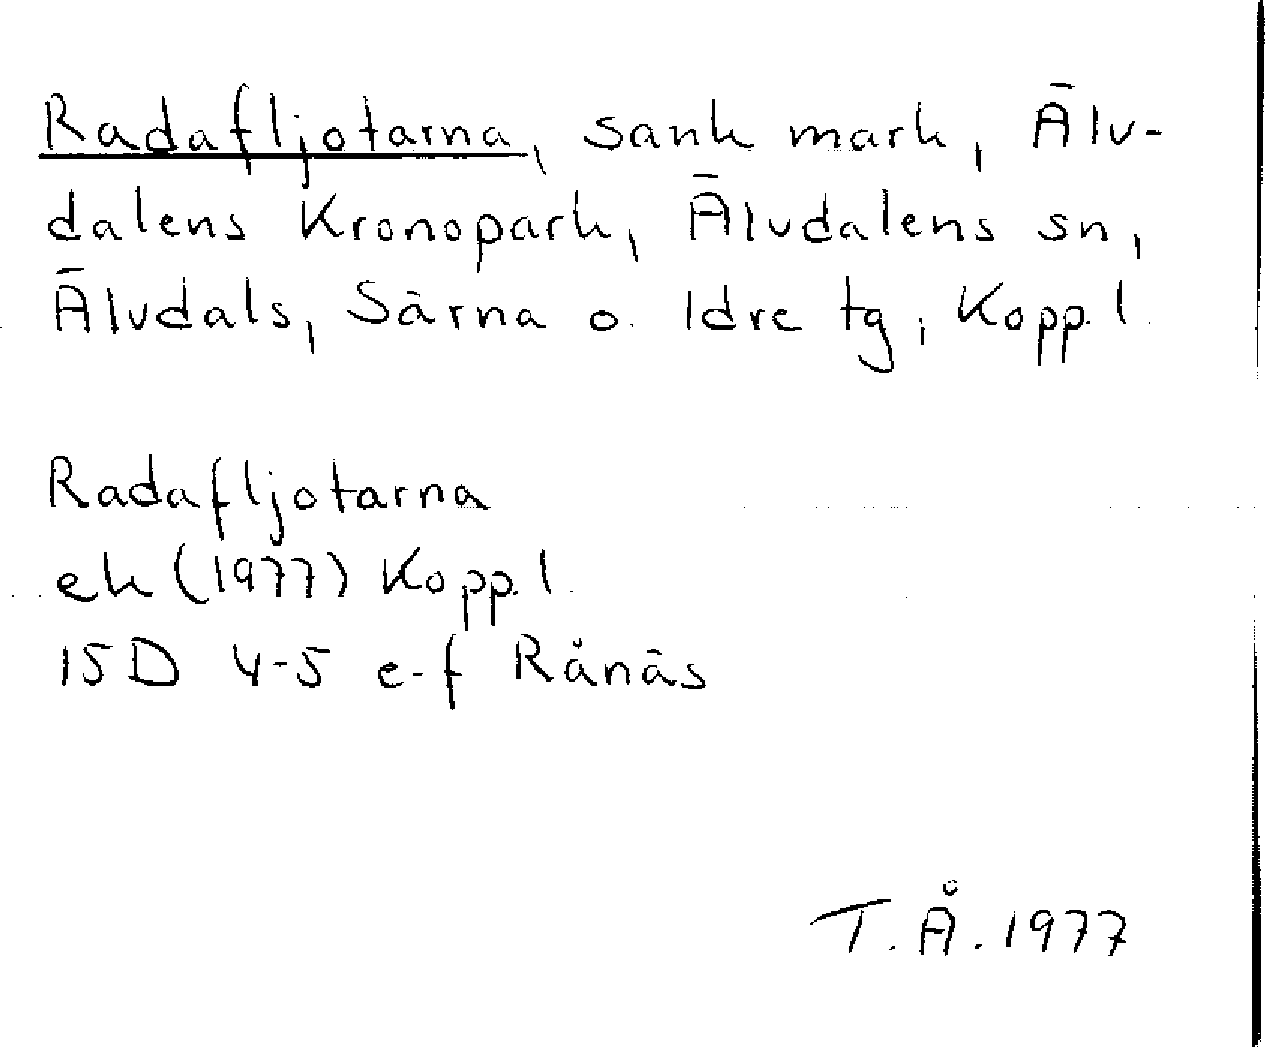 Radafljotarna, sank mark, Älv-
dalens Kronopark, Älvdalens sn,
Älvdals, Särna o. Idre tg, Kopp.l.
Radafljotarna
ek (1977) Kopp.l.
15D 4-5 e-f Rånäs
T.Å. 1977